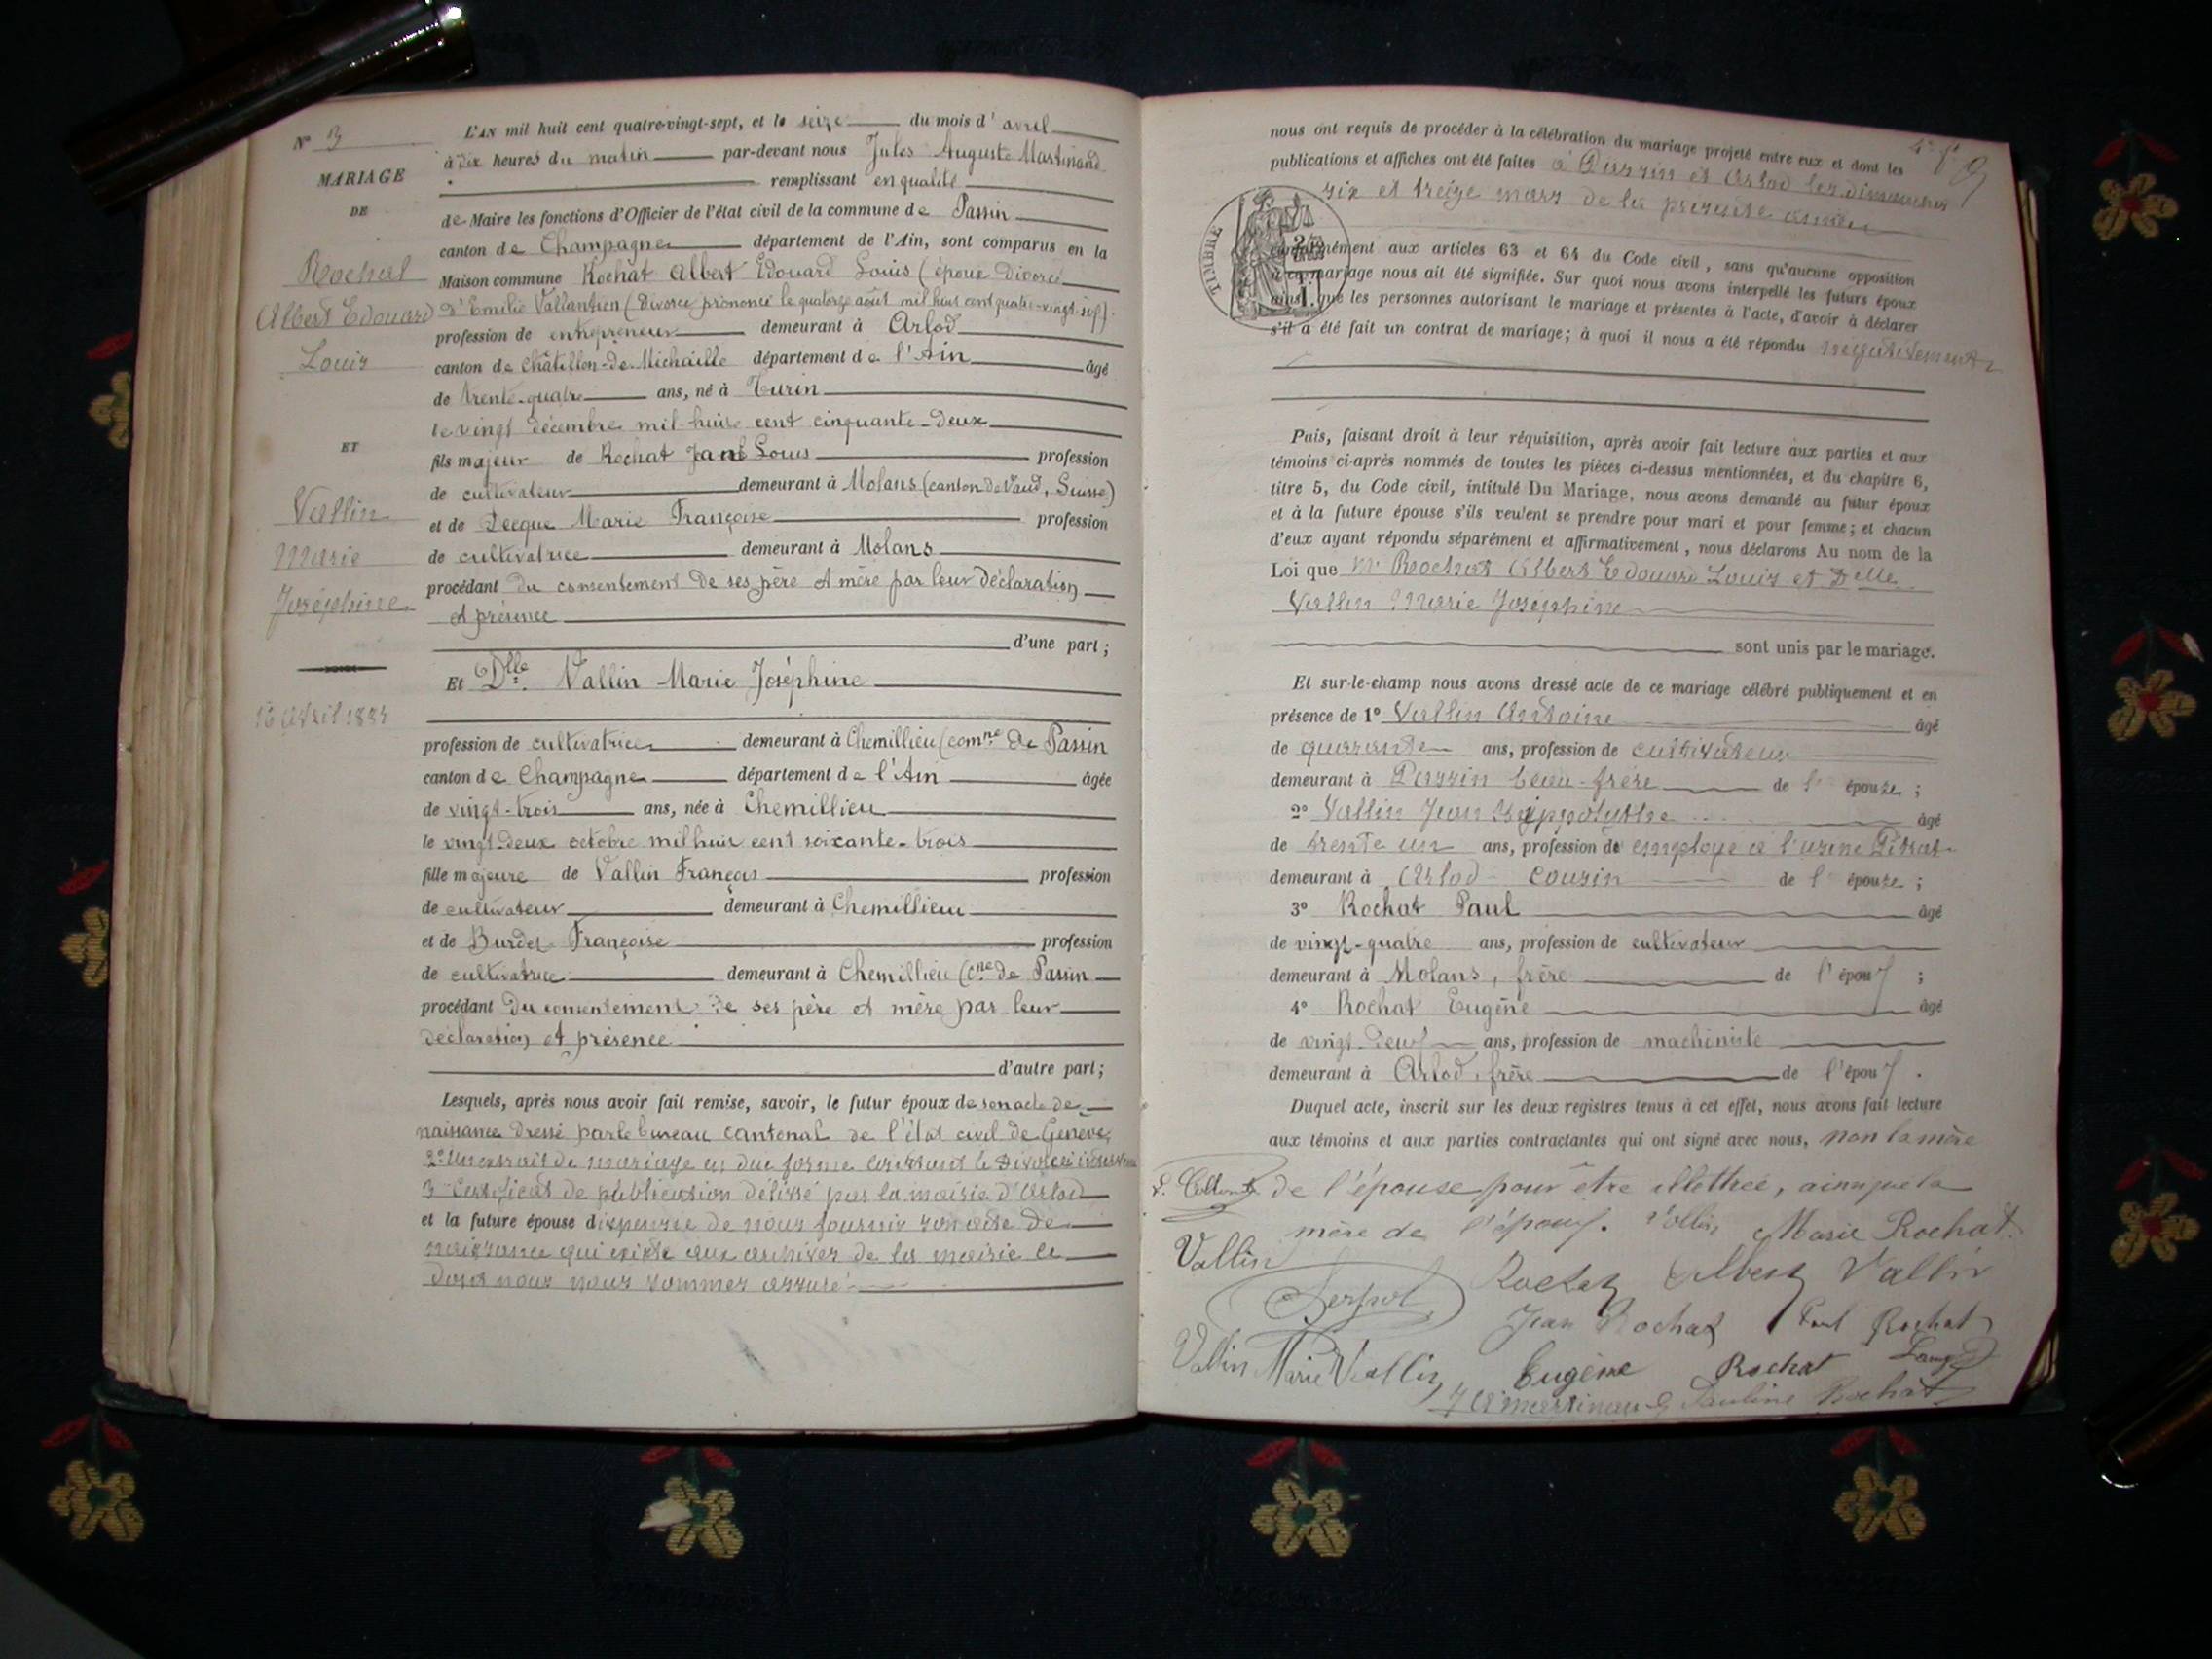 N° 3
MARIAGE
DE
Rochat
Albert Edouard
Louis
ET
Vallin
Marie
Joséphine
16 Avril 1887
L'AN mil huit cent quatre-vingt-sept, et le seize du mois d'avril
à dix heures du matin par-devant nous Jules Auguste Martinand
remplissant en qualité
de Maire les fonctions d'Officier de l'état civil de la commune de Passin
canton de Champagne département de l'Ain, sont comparus en la
Maison commune Rochat Albert Edouard Louis (époux divorcé
d'Emilie Vallantien (Divorce prononcé le quatorze août mil huit cent quatre-vingt-sept)
profession de entrepreneur demeurant à Arlod
canton de Châtillon-de-Michaille département de l'Ain âgé
de trente-quatre ans, né à Turin
le vingt décembre mil huit cent cinquante-deux
fils majeur de Rochat Jean Louis profession
de cultivateur demeurant à Molans (canton de Vaud, Suisse)
et de Decque Marie Françoise profession
de cultivatrice demeurant à Molans
procédant du consentement de ses père et mère par leur déclaration
et présence
d'une part;
Et Dlle. Vallin Marie Joséphine
profession de cultivatrice demeurant à Chemillieu (comne de Passin
canton de Champagne département de l'Ain âgée
de vingt-trois ans, née à Chemillieu
le vingt-deux octobre mil huit cent soixante-trois
fille majeure de Vallin François profession
de cultivateur demeurant à Chemillieu
et de Burdet Françoise profession
de cultivatrice demeurant à Chemillieu (cne de Passin
procédant du consentement de ses père et mère par leur
déclaration et présence
d'autre part;
Lesquels, après nous avoir fait remise, savoir, le futur époux de son acte de
naissance dressé par le bureau cantonal de l'état civil de Genève,
2° Un extrait de mariage en due forme constatant le divorce
3° Certificat de publication délivré par la mairie d'Arlod
et la future épouse dispensée de nous fournir son acte de
naissance qui existe aux archives de la mairie ce
dont nous nous sommes assuré
nous ont requis de procéder à la célébration du mariage projeté entre eux et dont les
publications et affiches ont été faites à Passin et Arlod les dimanches
six et treize mars de la présente année
TIMBRE
conformément aux articles 63 et 64 du Code civil, sans qu'aucune opposition
à ce mariage nous ait été signifiée. Sur quoi nous avons interpellé les futurs époux
ainsi que les personnes autorisant le mariage et présentes à l'acte, d'avoir à déclarer
s'il a été fait un contrat de mariage; à quoi il nous a été répondu négativement
Puis, faisant droit à leur réquisition, après avoir fait lecture aux parties et aux
témoins ci-après nommés de toutes les pièces ci-dessus mentionnées, et du chapitre 6,
titre 5, du Code civil, intitulé Du Mariage, nous avons demandé au futur époux
et à la future épouse s'ils veulent se prendre pour mari et pour femme; et chacun
d'eux ayant répondu séparément et affirmativement, nous déclarons Au nom de la
Loi que Mr Rochat Albert Edouard Louis et Delle
Vallin Marie Joséphine
sont unis par le mariage.
Et sur-le-champ nous avons dressé acte de ce mariage célébré publiquement et en
présence de 1° Vallin Antoine âgé
de quarante ans, profession de cultivateur
demeurant à Passin beau-frère de l'épouse;
2° Vallin Jean Hyppolythe âgé
de trente un ans, profession de employé à l'usine
demeurant à Arlod cousin de l'épouse;
3° Rochat Paul âgé
de vingt-quatre ans, profession de cultivateur
demeurant à Molans, frère de l'époux;
4° Rochat Eugène âgé
de vingt-deux ans, profession de machiniste
demeurant à Arlod, frère de l'époux.
Duquel acte, inscrit sur les deux registres tenus à cet effet, nous avons fait lecture
aux témoins et aux parties contractantes qui ont signé avec nous, non la mère
de l'épouse pour être illettrée, ainsi que la
mère de l'époux. Vallin Marie Rochat
Vallin Rochat Albert Vallin
Jean Rochat Paul Rochat
Vallin Marie Vallin Eugène Rochat
J A Martinand Pauline Rochat